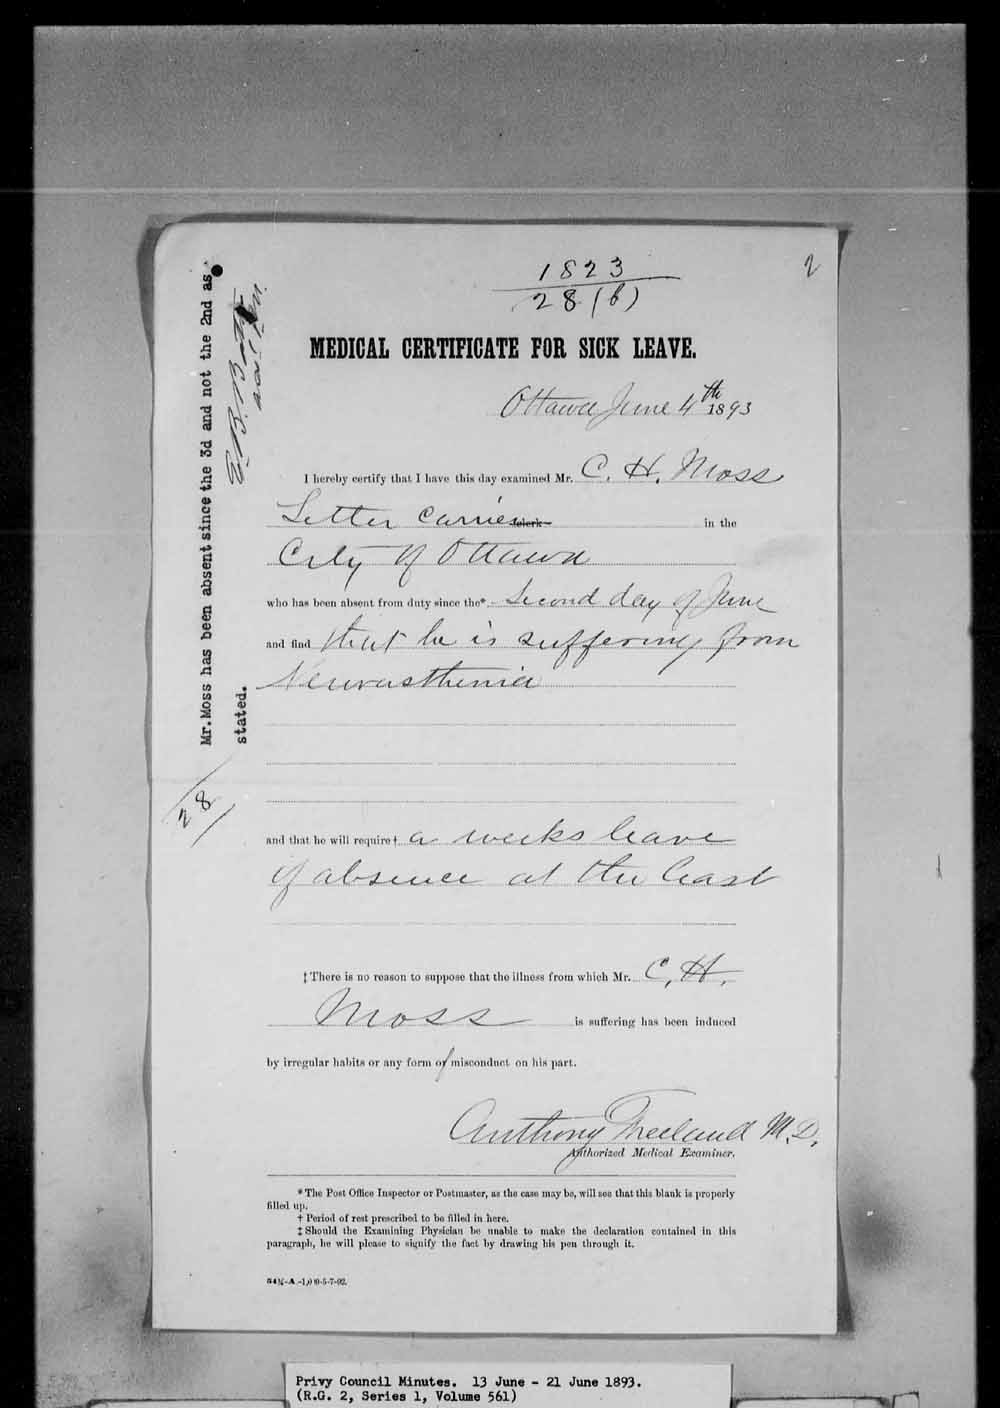 2
1823
28 (b)
MEDICAL CERTIFICATE FOR SICK LEAVE.
Ottawa June 4th 1893
I hereby certify that I have this day examined Mr. C. H. Moss
Letter Carrier clerk in the
City of Ottawa
who has been absent from duty since the* Second day of June
and find that he is suffering from
Neurasthenia
and that he will require † a weeks leave
of absence at the least
‡ There is no reason to suppose that the illness from which Mr. C. H.
Moss is suffering has been induced
by irregular habits or any form of misconduct on his part.
Anthony Freeland M.D.
Authorized Medical Examiner.
* The Post Office Inspector or Postmaster, as the case may be, will see that this blank is properly
filled up.
† Period of rest prescribed to be filled in here.
‡ Should the Examining Physician be unable to make the declaration contained in this
paragraph, he will please to signify the fact by drawing his pen through it.
Mr. Moss has been absent since the 3d and not the 2nd as
stated.
28
Privy Council Minutes. 13 June - 21 June 1893.
(R.G. 2, Series 1, Volume 561)